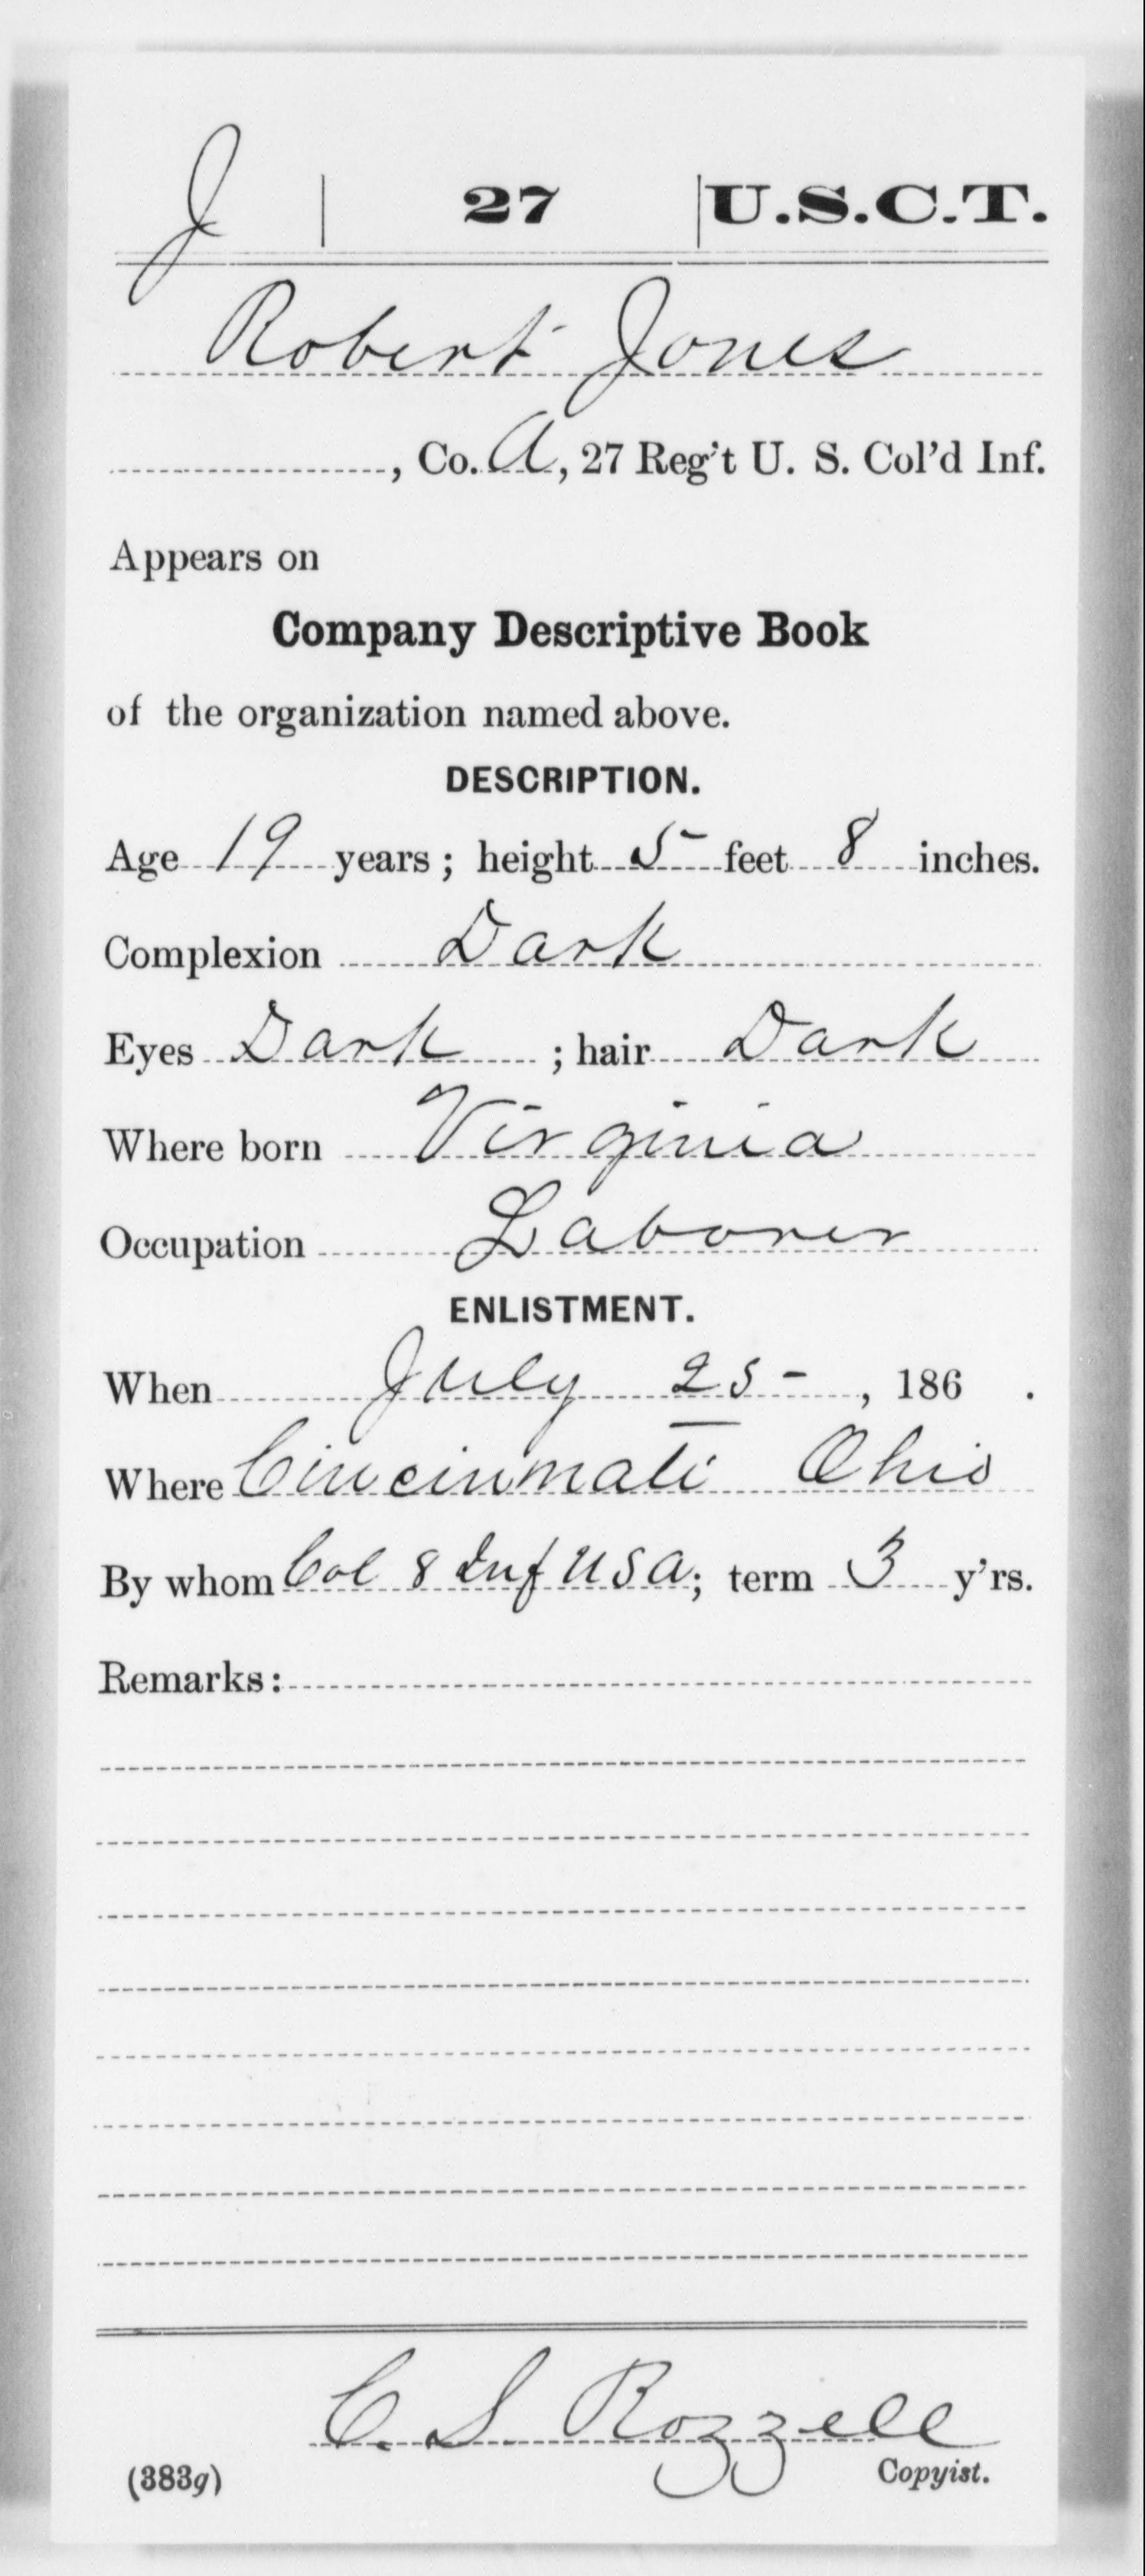 J | 27 | U.S.C.T.
Robert Jones
, Co. A, 27 Reg't U. S. Col'd Inf.
Appears on
Company Descriptive Book
of the organization named above.
DESCRIPTION.
Age 19 years; height 5 feet 8 inches.
Complexion Dark
Eyes Dark ; hair Dark
Where born Virginia
Occupation Laborer
ENLISTMENT.
When July 25 - , 186 .
Where Cincinnati Ohio
By whom Col 8 Inf USA; term 3 y'rs.
Remarks:
C. S. Rozzell
(383g) Copyist.